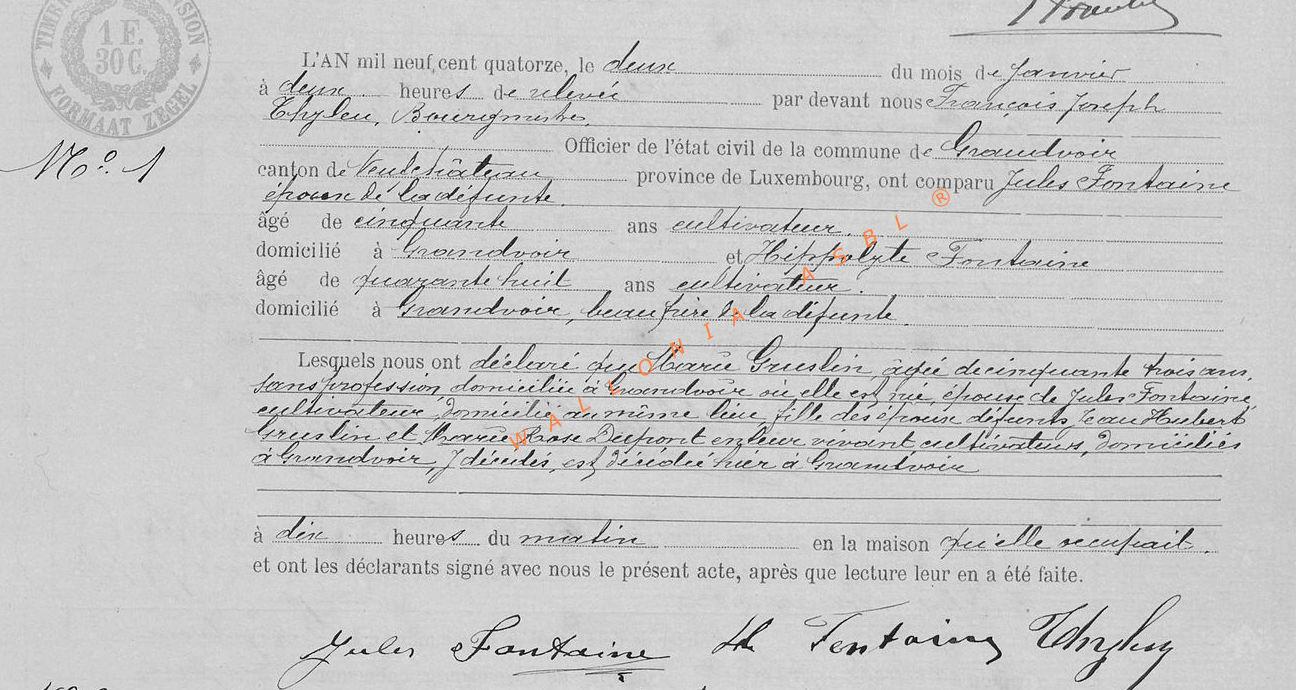 TIMBRE DIMENSION
1 F.
30 C.
FORMAAT ZEGEL
L'AN mil neuf cent quatorze, le deux du mois de Janvier
à deux heures de relevée par devant nous François Joseph
Thyleu, Bourgmestre,
Officier de l'état civil de la commune de Grandvoir
Nº 1
canton de Neufchâteau province de Luxembourg, ont comparu Jules Fontaine
époux de la défunte.
âgé de cinquante ans cultivateur.
domicilié à Grandvoir et Hippolyte Fontaine
âgé de quarante huit ans cultivateur.
domicilié à Grandvoir, beau frère de la défunte.
Lesquels nous ont déclaré que Marie Gruslin, âgée de cinquante trois ans,
sans profession, domiciliée à Grandvoir où elle est née, épouse de Jules Fontaine,
cultivateur, domicilié au même lieu, fille des époux défunts Jean Hubert
Gruslin et Marie Rose Dupont en leur vivant cultivateurs, domiciliés
à Grandvoir, y décédés, est décédée hier à Grandvoir
à dix heures du matin en la maison qu'elle occupait.
et ont les déclarants signé avec nous le présent acte, après que lecture leur en a été faite.
Jules Fontaine H Fontaine
WALLONIA ASBL ®